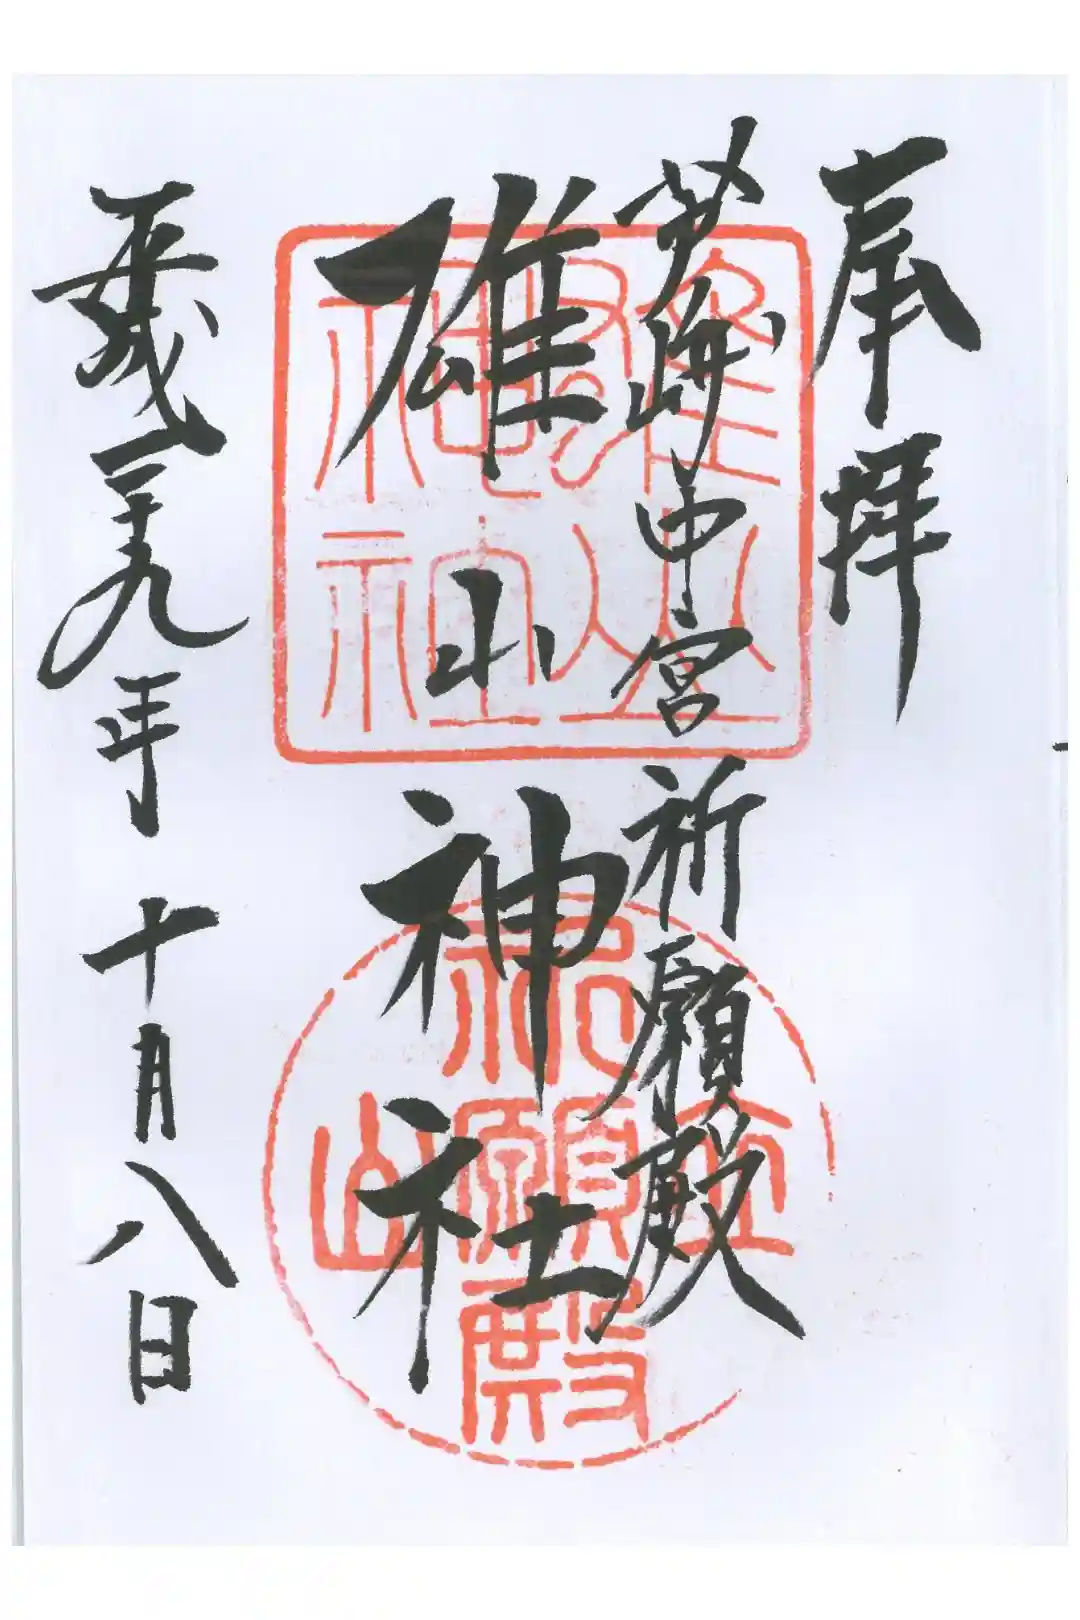 奉拝
芦峅中宮祈願殿
雄山神社
平成二十九年十月八日
雄山神社
立山
祈願殿